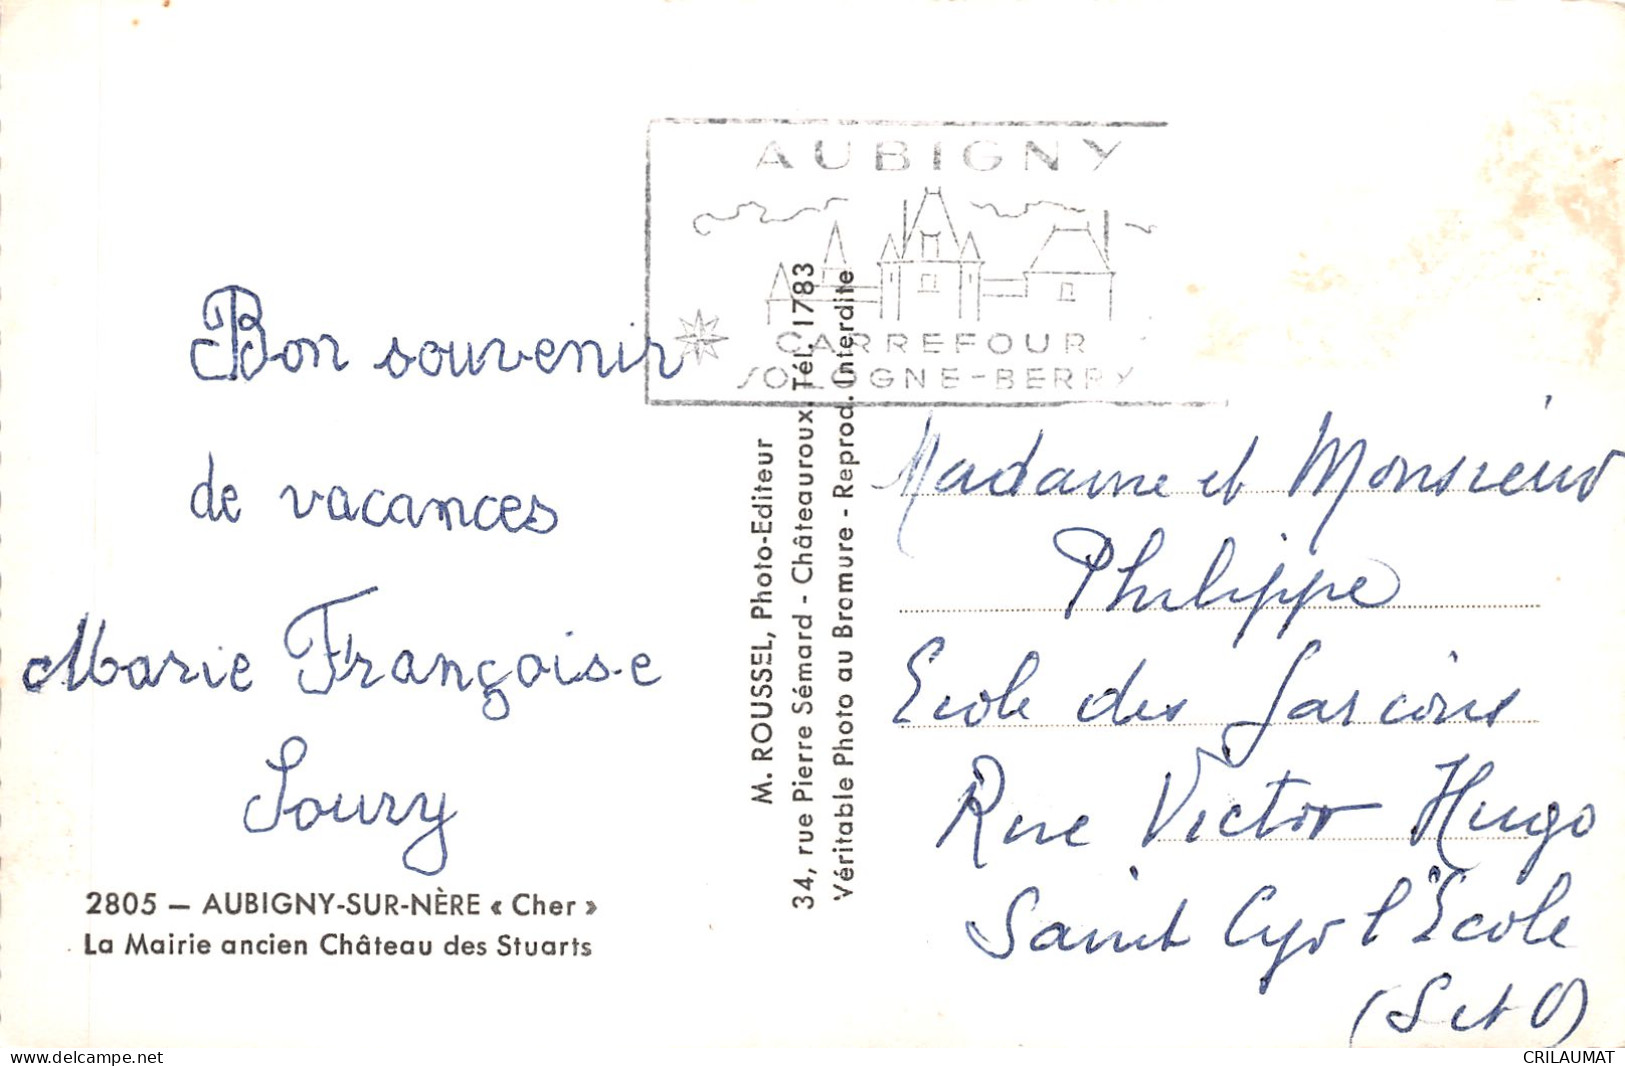 AUBIGNY
CARREFOUR
SOLOGNE-BERRY
Bon souvenir
de vacances
Marie Françoise
Soury
2805 — AUBIGNY-SUR-NÈRE « Cher »
La Mairie ancien Château des Stuarts
M. ROUSSEL, Photo-Editeur
34, rue Pierre Sémard - Châteauroux. Tél. 1783
Véritable Photo au Bromure - Reprod. Interdite
Madame et Monsieur
Philippe
Ecole des Garçons
Rue Victor Hugo
Saint Cyr l'Ecole
(S et O)
www.delcampe.net
CRILAUMAT